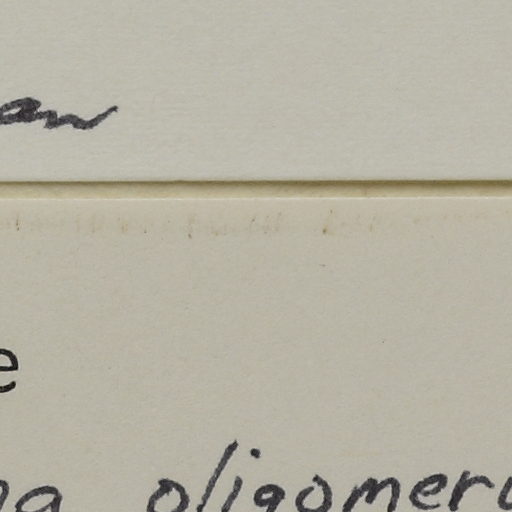 an
e
na oligomeru